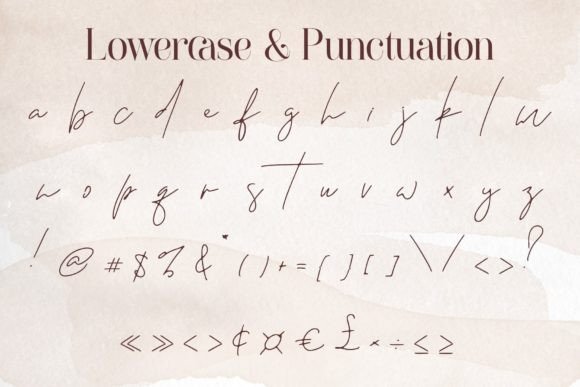 Lowercase & Punctuation
a b c d e f g h i j k l m
n o p q r s t u v w x y z
! @ # $ % & * ( ) + = { } [ ] \ / < > ?
« » < > ¢ ¤ € £ × ÷ ≤ ≥